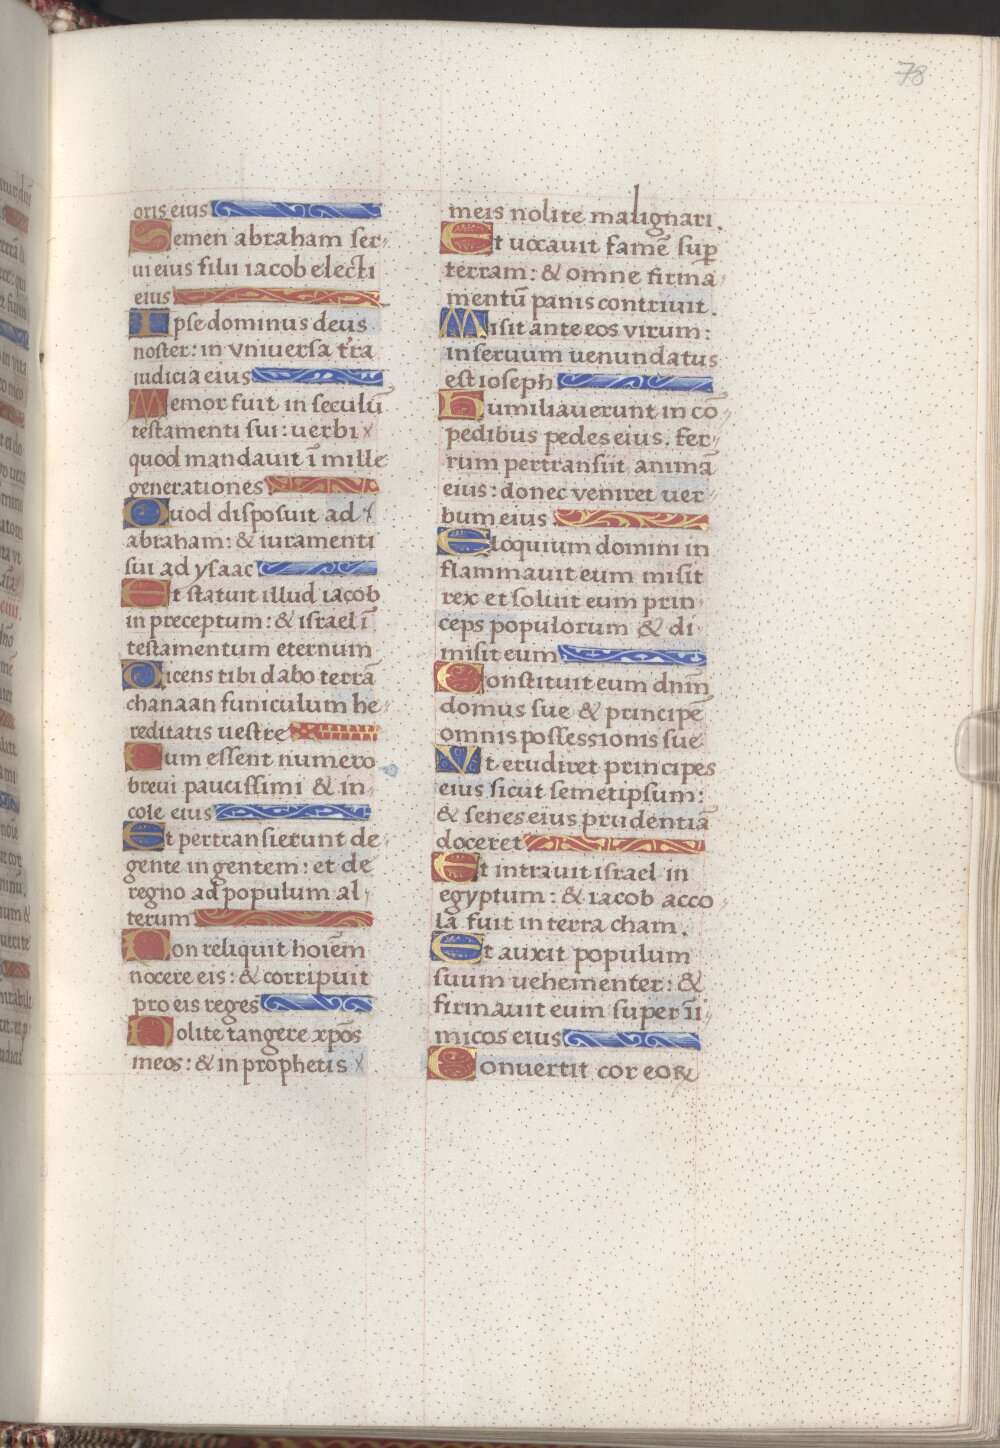 78
oris eius
Semen abraham ser
ui eius filii iacob electi
eius
Ipse dominus deus
noster: in vniuersa tr̃ra
iudicia eius
Memor fuit in seculũ
testamenti sui: uerbi
quod mandauit ĩ mille
generationes
Quod disposuit ad
abraham: & iuramenti
sui ad ysaac
Et statuit illud iacob
in preceptum: & israel ĩ
testamentum eternum
Dicens tibi dabo terrã
chanaan funiculum he
reditatis uestre
Cum essent numero
breui paucissimi & in
cole eius
Et pertransierunt de
gente in gentem: et de
regno ad populum al
terum
Non reliquit hoiẽm
nocere eis: & corripuit
pro eis reges
Nolite tangere xp̃os
meos: & in prophetis
meis nolite malignari.
Et uocauit famẽ sup̱
terram: & omne firma
mentũ panis contriuit.
Misit ante eos virum:
in seruum uenundatus
est ioseph
Humiliauerunt in co
pedibus pedes eius. fer
rum pertransiit animã
eius: donec veniret uer
bum eius
Eloquium domini in
flammauit eum misit
rex et soluit eum prin
ceps populorum & di
misit eum
Constituit eum dnm̃
domus sue & principẽ
omnis possessionis sue
Vt erudiret principes
eius sicut semetipsum:
& senes eius prudentiã
doceret
Et intrauit israel in
egyptum: & iacob acco
la fuit in terra cham.
Et auxit populum
suum uehementer: &
firmauit eum super ĩi
micos eius
Conuertit cor eoꝝ